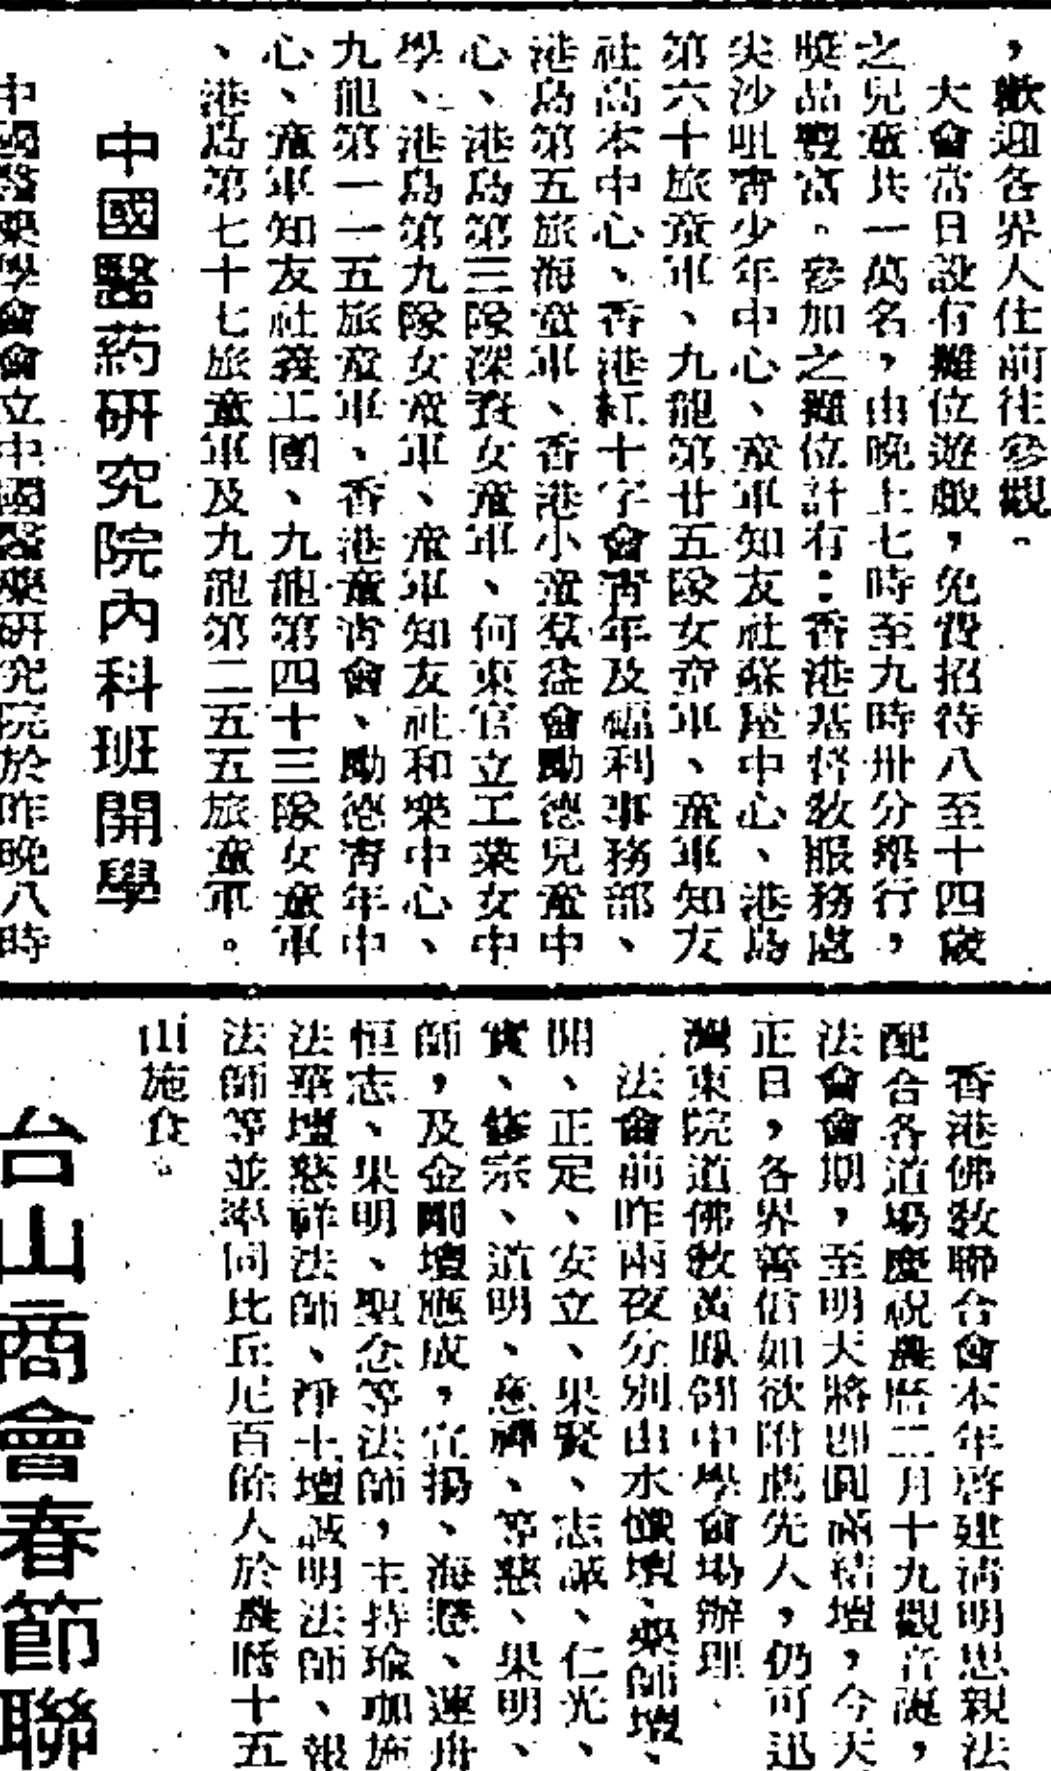 ，歡迎各界人仕前往參觀。
大會當日設有攤位遊戲，免費招待八至十四歲
之兒童共一萬名，由晚上七時至九時卅分舉行，
獎品豐富。參加之攤位計有：香港基督敎服務處
尖沙咀靑少年中心、童軍知友社蘇屋中心、港島
第六十旅童軍、九龍第廿五隊女童軍、童軍知友
社高本中心、香港紅十字會靑年及福利事務部、
港島第五旅海童軍、香港小童羣益會勵德兒童中
心、港島第三隊深資女童軍、何東官立工業女中
學、港島第九隊女童軍、童軍知友社和樂中心、
九龍第一一五旅童軍、香港童靑會、勵德靑年中
心、童軍知友社義工團、九龍第四十三隊女童軍
、港島第七十七旅童軍及九龍第二五五旅童軍。
中國醫葯研究院內科班開學
中國醫藥學會會立中國醫藥研究院於昨晚八時
香港佛敎聯合會本年啓建淸明思親法
配合各道場慶祝農曆二月十九觀音誕，
法會會期，至明天將即圓滿結壇，今天
正日，各界善信如欲附薦先人，仍可迅
灣東院道佛敎黃鳳翎中學會場辦理
法會前昨兩夜分別由水懺壇、藥師壇、
開、正定、安立、果賢、志誠、仁光、
實、修宗、道明、意禪、等慈、果明、
師，及金剛壇應成，宣揚、海慧、運舟
恒志、果明、聖念等法師，主持瑜珈施
法華壇慈祥法師、淨土壇誠明法師、報
法師等並率同比丘尼百餘人於農曆十五
山施食。
台山商會春節聯